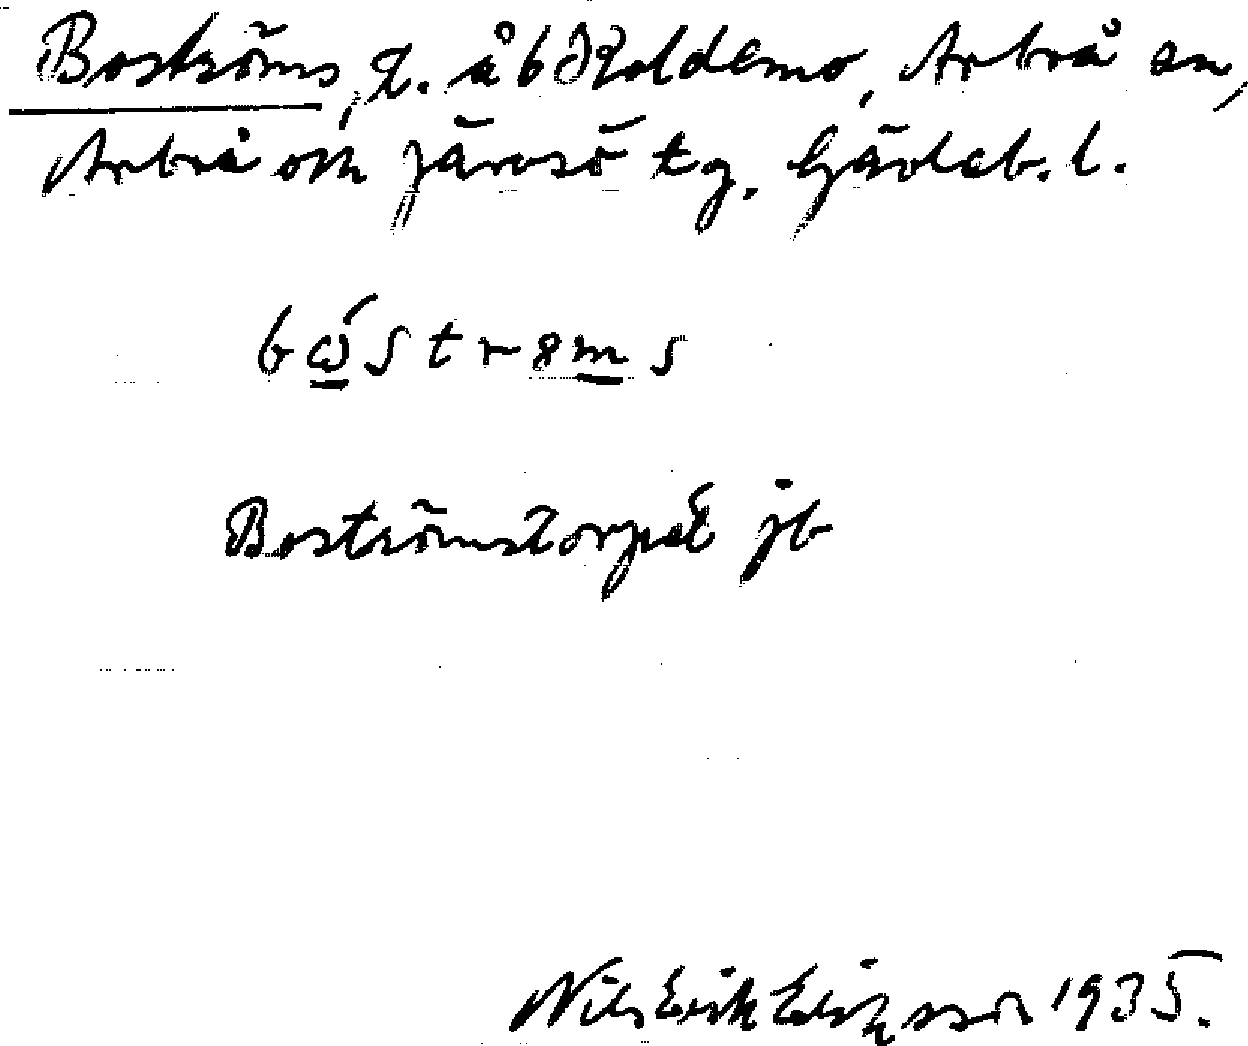 Boströms, g. å b Koldemo, Arbrå sn,
Arbrå och Järvsö tg. Gävleb. l.
bώstrɵms
Boströmstorpet jb
Nils Erik Eriksson 1935.